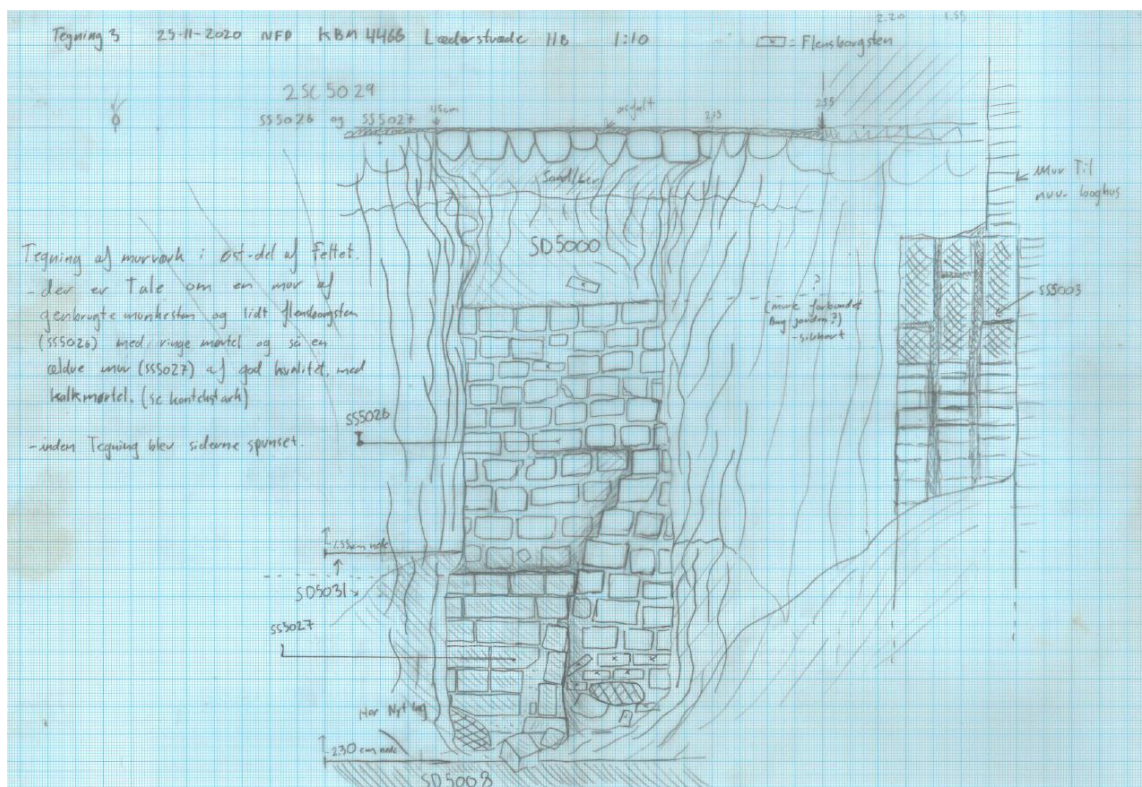 Tegning 3 25-11-2020 NFP KBM 4466 Læderstræde 11B 1:10 ☒ = Flensborgsten
2.20 1.55
2SC5029
SS5026 og SS5027
asfalt
255
Sand/ler
SD5000
Mur Til
nuv. baghus
SS5003
?
Tegning af murværk i øst-del af Feltet.
- der er Tale om en mur af
genbrugte munkesten og lidt flensborgsten
(SS5026) med ringe mørtel og så en
ældre mur (SS5027) af god kvalitet, med
kalkmørtel. (se kontekstark)
- inden Tegning blev siderne spunset.
SS5026
155cm nede
SD5031
SS5027
Nyt lag
230 cm nede
SD5008